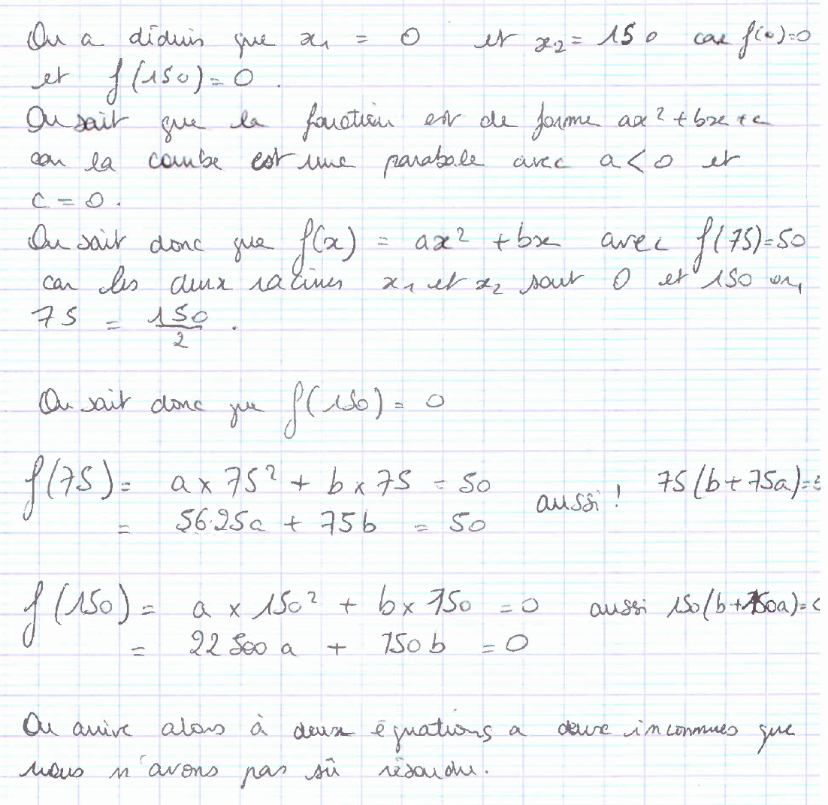 On a déduis que x₁ = 0 et x₂ = 150 car f(0)=0
et f(150) = 0.
On sait que la fonction est de forme ax² + bx + c
car la courbe est une parabole avec a < 0 et
c = 0.
On sait donc que f(x) = ax² + bx avec f(75)=50
car les deux racines x₁ et x₂ sont 0 et 150 or,
75 = 150/2 .
On sait donc que f(150) = 0
f(75) = a x 75² + b x 75 = 50 aussi ! 75(b + 75a)=5
= 5625a + 75b = 50
f(150) = a x 150² + b x 150 = 0 aussi 150(b+150a)=0
= 22500 a + 150b = 0
On arrive alors à deux équations a deux inconnues que
nous n'avons pas sû résoudre.